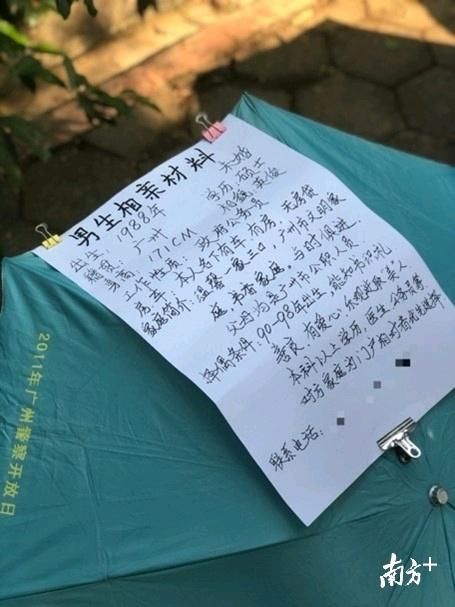 男生相亲材料
出生：1988年 未婚
籍贯：广州 学历：硕士
身高：171CM 相貌：英俊
工作性质：政府公务员
房车：本人名下有车、有房，无房贷
家庭简介：温馨一家三口，广州市文明家
庭，书香家庭。与时俱进，
父母均为广州市公职人员
择偶条件：90-98年出生，能知书识礼
善良，有爱心，
本科以上学历，医生、公务员
对方家庭对门户相对者优先选择
联系电话：
2011年广州警察开放日
南方+